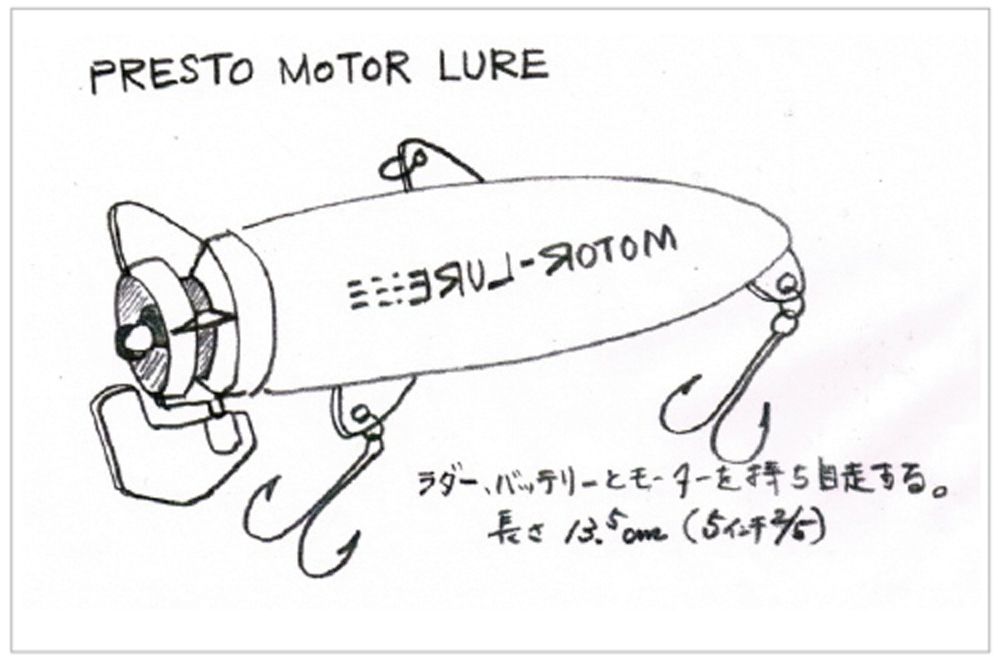 PRESTO MOTOR LURE
MOTOR-LURE
ラダー、バッテリーとモーターを持ち自走する。
長さ 13.5cm (5インチ2/5)